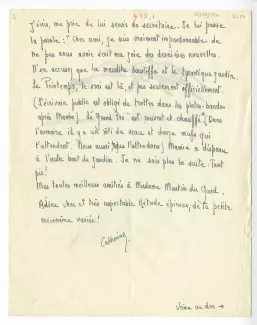 j'écris, me prie de lui servir de secrétaire. Je lui passe
la parole : "Cher ami, je suis vraiment impardonnable de
ne pas vous avoir écrit ma joie des dernières nouvelles.
N'en accusez que la maudite et le jardin.
Le Printemps, le vrai est là, et pas seulement officiellement.
(L'écrivain public est obligé de trotter dans les plates-bandes
après Mania). le Grand est souvent et chauffé. (Dans
l'armoire il y a un rôti de veau et douze œufs qui
t'attendent. Nous aussi t'attendons) Mania a disparu
à l'autre bout du jardin. Je ne sais plus la suite. Tant
pis!
Mes toutes meilleures amitiés à Madame Martin du Gard.
Adieu cher et très respectable, de ta petite
variée!
Catherine
Voir au dos →